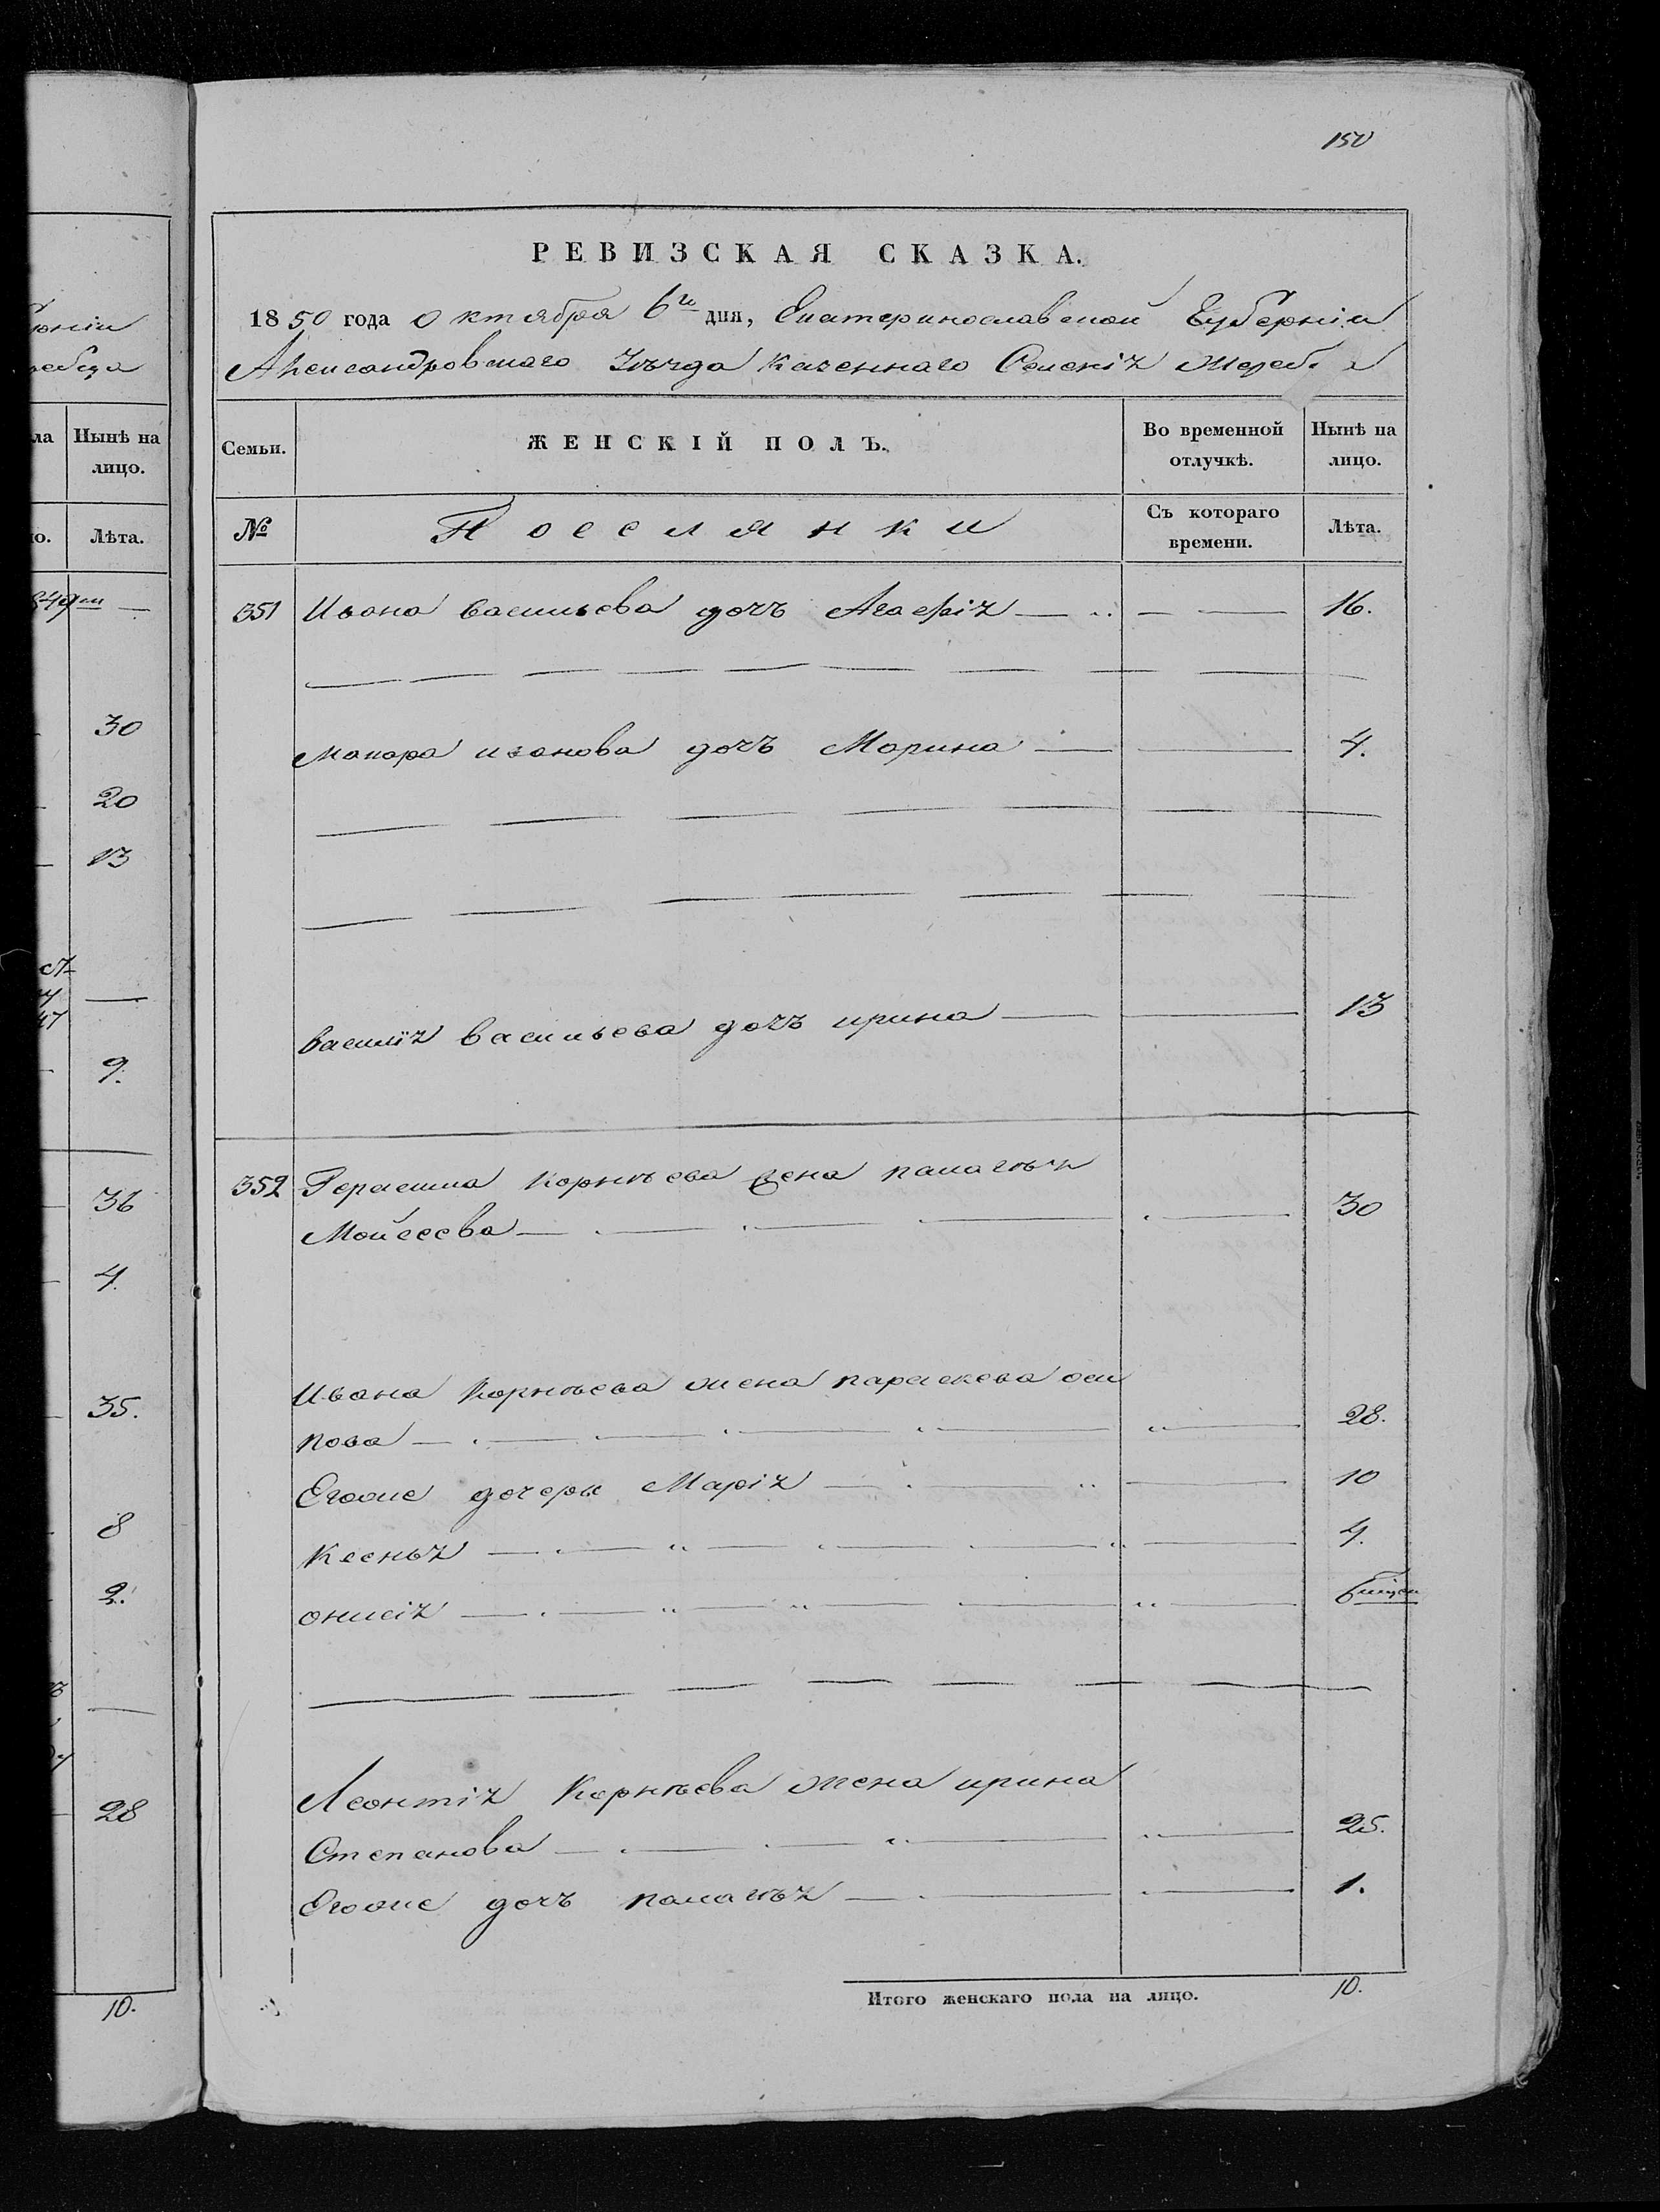 150
РЕВИЗСКАЯ СКАЗКА.
1850 года Октября 6го дня, Екатеринославской Губерніи
Александровскаго Уѣзда Казеннаго Селенія Жереб
Семьи.
ЖЕНСКІЙ ПОЛЪ.
Во временной отлучкѣ.
Нынѣ на лицо.
№
Поселянки
Съ котораго времени.
Лѣта.
351 Ивана васильева дочъ Агафія 16.
Макара иванова дочъ Марина 4.
василія васильева дочъ ирина 13
352 Герасима Корнѣева жена палагѣя
Мойсеева 30
Ивана Корнѣева жена параскева оси
пова 28.
Егоже дочеры Марія 10
Ксенья 4.
онисія 6 мѣсец
Леонтія Корнѣева жена ирина
Степанова 25.
Егоже дочъ палагѣя 1.
Итого женскаго пола на лицо. 10.
рніи
ребца
ла
Нынѣ на лицо.
Лѣта.
849
30
20
13
47
9.
36
4.
35.
8
2.
28
10.